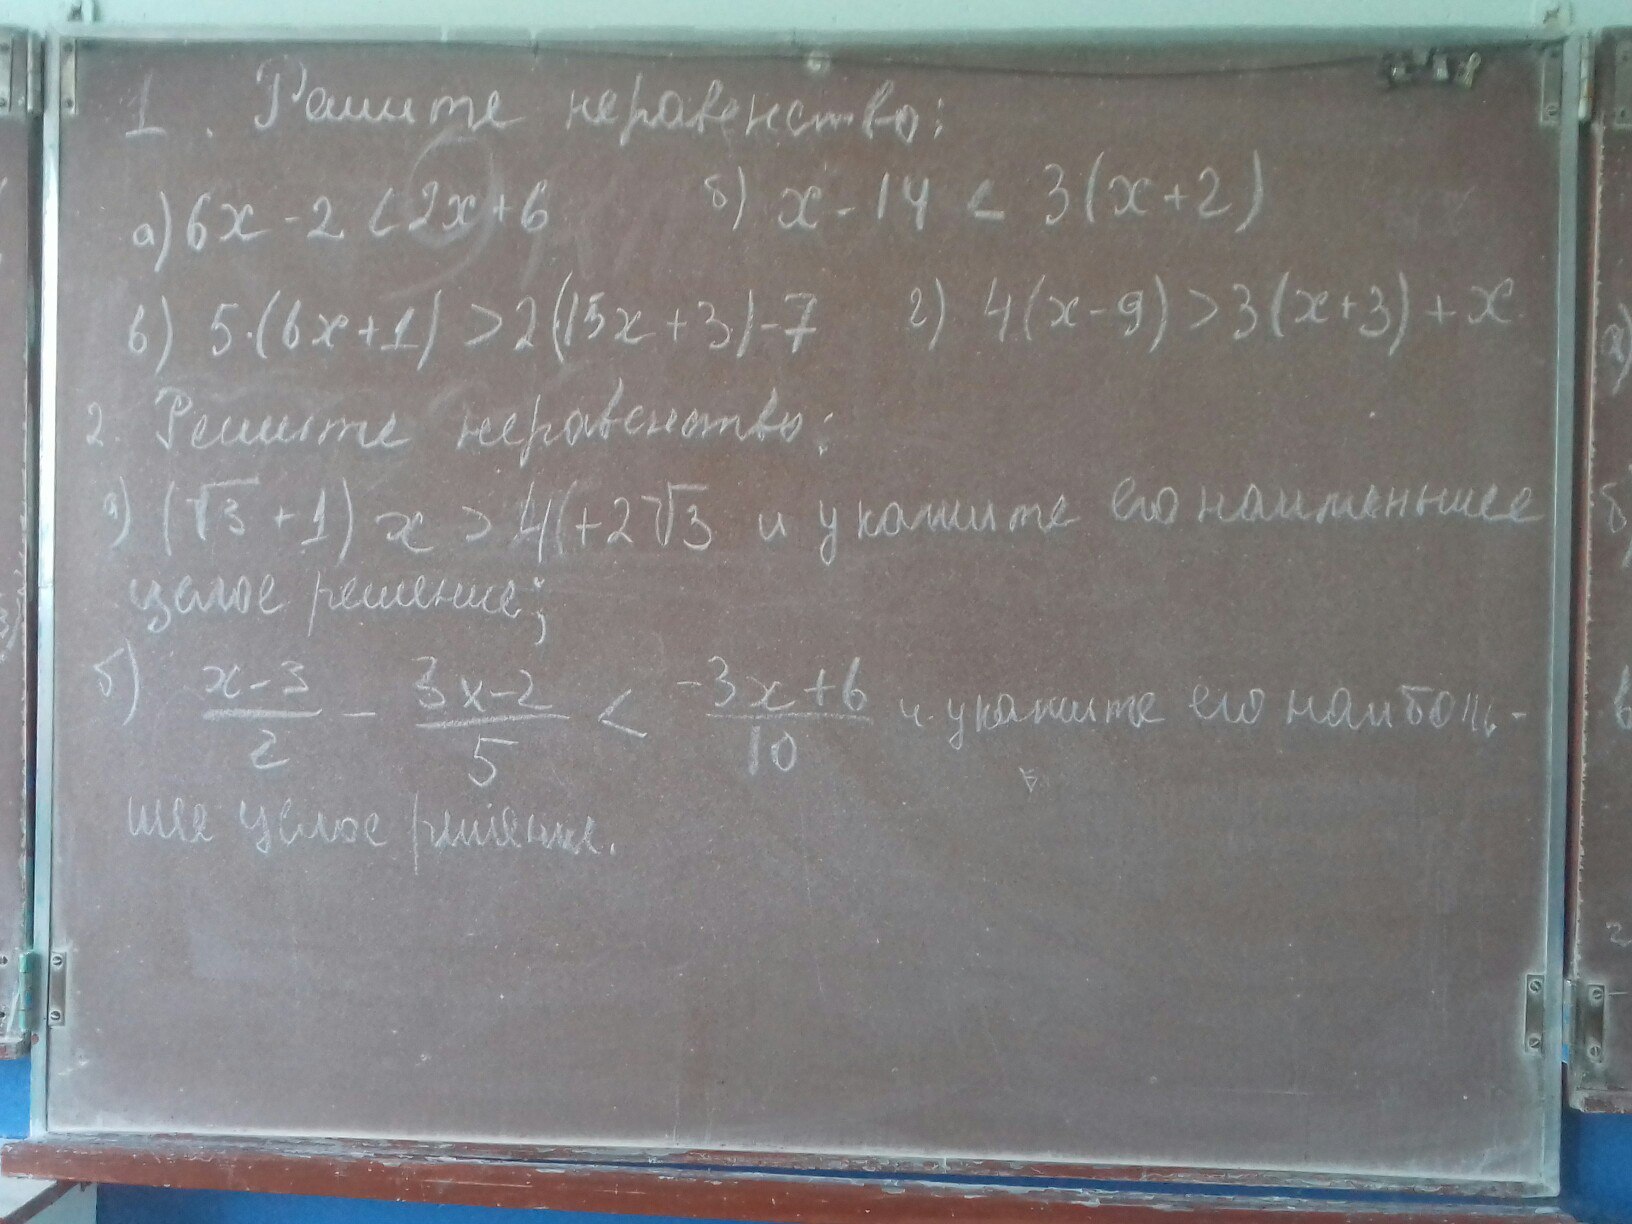 1. Решите неравенство:
а) 6x - 2 < 2x + 6 б) x - 14 < 3(x + 2)
в) 5·(6x + 1) > 2(15x + 3) - 7 г) 4(x - 9) > 3(x + 3) + x
2. Решите неравенство:
а) (√3 + 1) x > 4 + 2√3 и укажите его наименьшее
целое решение;
б) (x - 3)/2 - (3x - 2)/5 < (-3x + 6)/10 и укажите его наиболь-
шее целое решение.